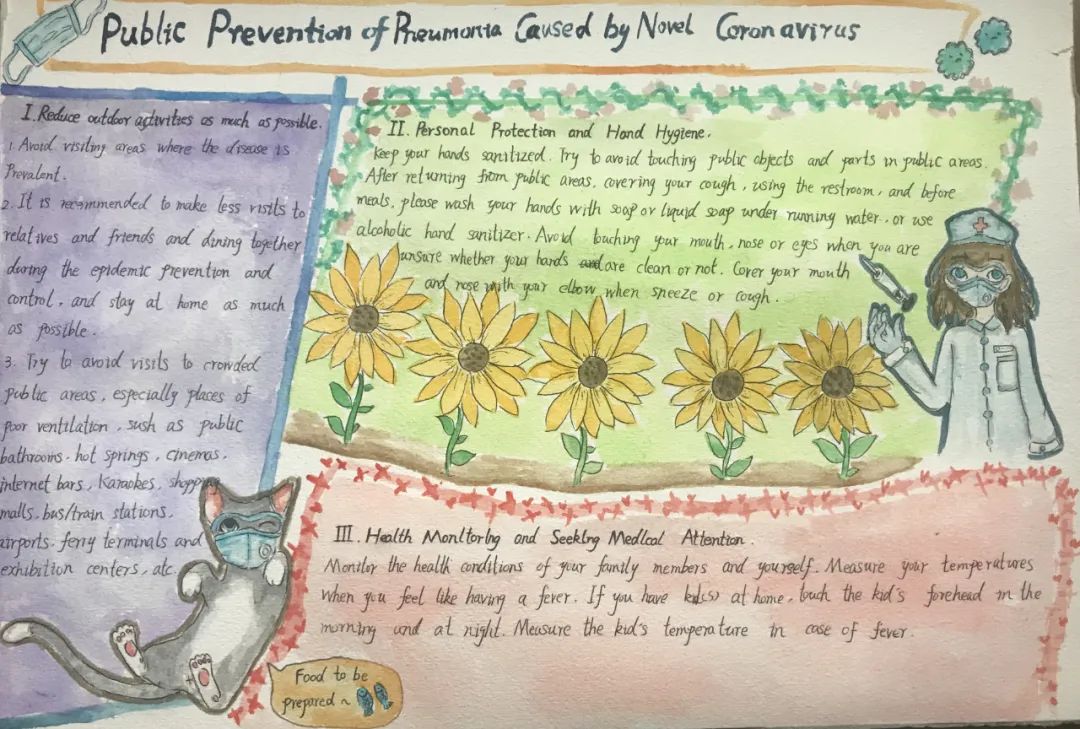 Public Prevention of Pneumonia Caused by Novel Coronavirus
I. Reduce outdoor activities as much as possible.
1. Avoid visiting areas where the disease is
Prevalent.
2. It is recommended to make less visits to
relatives and friends and dining together
during the epidemic prevention and
control, and stay at home as much
as possible.
3. Try to avoid visits to crowded
public areas, especially places of
poor ventilation, sush as public
bathrooms. hot springs, cinemas,
internet bars, Karaokes, shopping
malls, bus/train stations,
airports. ferry terminals and
exhibition centers, atc.
II. Personal Protection and Hand Hygiene.
Keep your hands sanitized. Try to avoid touching public objects and parts in public areas.
After returning from public areas, covering your cough, using the restroom, and before
meals, please wash your hands with soap or liquid soap under running water, or use
alcoholic hand sanitizer. Avoid touching your mouth, nose or eyes when you are
unsure whether your hands are clean or not. Cover your mouth
and nose with your elbow when sneeze or cough.
III. Health Monitoring and Seeking Medical Attention.
Monitor the health conditions of your family members and yourself. Measure your temperatures
when you feel like having a fever. If you have kid(s) at home, touch the kid's forehead in the
morning and at night. Measure the kid's temperature in case of fever.
Food to be
prepared ~